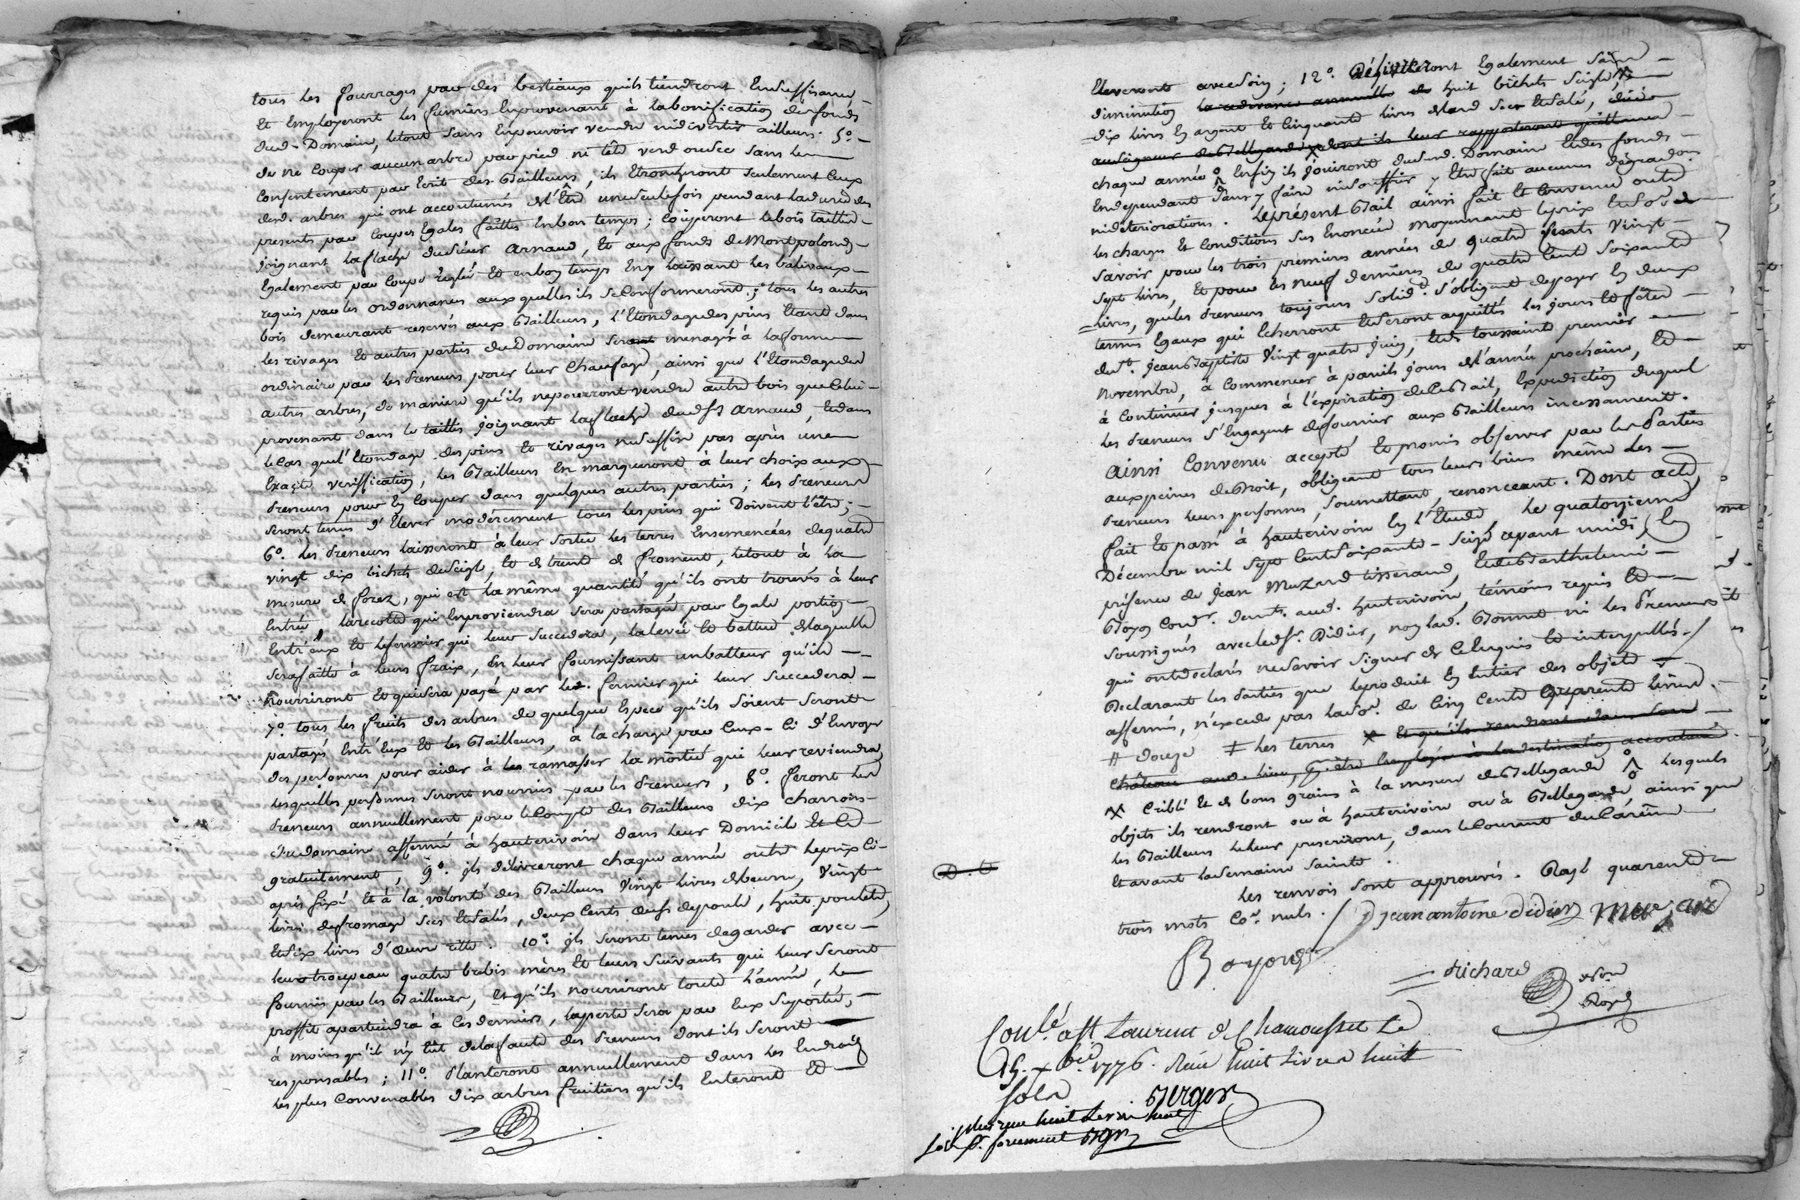 tous les fourrages par des bestiaux quils tiendront En suffisance
Et Employeront les fumiers Enprovenant à la bonification des fonds
dud. Domaine, letout sans Enpouvoir vendre nidivertir ailleurs. 5o.
de ne Couper aucun arbre par pied ni tête verd ou sec sans le
Consentement par Ecrit des Bailleurs, ils Etronsseront seulement Ceux
desd. arbres qui ont accoutumés d'l'Être uneseulefois pendant la durée des
presents par Coupes Egales faittes Enbon temps ; Couperont lebois taillis
joignant la flache dusieur Arnaud, Et aux fonds de Montpolond
Egalement par Coupe reglée Et enbon temps En y laissant les balivaux
requis par les ordonnances auxquelles ils se Conformeront ; tous les autres
bois demeurant reservés aux Bailleurs, l'Etondage des pins Etant dans
les rivages Et autres parties duDomaine sera menagé à la forme
ordinaire par les Preneurs pour leur Chaufage, ainsi que l'Etondage des
autres arbres, de maniere qu'ils nepourront vendre autre bois que Celui
provenant dans le taillis joignant laflache dudsr Arnaud, Et dans
le Cas que l'Etondage des pins Et rivages nesuffise pas après une
Exacte vérification, les Bailleurs En marqueront à leur choix aux
Preneurs pour En Couper dans quelques autres parties ; les Preneurs
seront tenus d'Elever modérément tous les pins qui Doivent l'être ;
6o. les Preneurs laisseront à leur sortie les terres Ensemencées de quatre
vingt dix bichets deseigle, Et de trente de froment, letout à la
mesure de forez, qui est la même quantité qu'ils ont trouvés à leur
Entrée, larecolte qui Enproviendra sera partagée par Egale portion
Entr'Eux Et lefermier qui leur succedera, la levée Et battue de laquelle
sera faitte à leurs fraix, En leur fournissant un batteur qu'ils
nourriront Et quisera payé par led. fermier qui leur succedera
7o. tous les fruits des arbres de quelque Espece qu'ils soient seront
partagés Entr'Eux Et les Bailleurs, à la charge par Ceux-Ci d'Envoyer
des personnes pour aider à les ramasser la moitié qui leur reviendra
lesquelles personnes seront nourries par les Preneurs, 8o. feront les
Preneurs annuellement pour leCompte des Bailleurs dix charrois
du domaine affermé à hauterivoire dans leur Domicile Et Ce
gratuitement, 9o. ils délivreront chaque année outre leprix Ci-
après fixé Et à la volonté des Bailleurs Vingt livres de beurre, Vingt
livres defromage sec Etsalés, deux Cents œufs depoule, huit poulets,
Et six livres d'œuvre ritte. 10o. ils seront tenus degarder avec
leur troupeau quatre brebis mères Et leurs suivants qui leur seront
fournis par les Bailleurs, Et qu'ils nourriront toute l'année, le
proffit apartiendra à Ces derniers, la perte sera par Eux suportée,
à moins qu'il n'y Eût de la faute des Preneurs dont ils seront
responsables ; 11o. Planteront annuellement dans les Endroits
les plus Convenables dix arbres fruitiers qu'ils Enteront Et
Eleveront avec soin ; 12o. délivreront Egalement sans
diminution la redevance annuelle de huit bichets seigle,
dix livres En argent Et Cinquante livres de lard sec Etsalé,
chaque année Enfin ils jouiront dususd. Domaine Et des fonds
Endependant sans y faire nisouffrir y Etre fait aucunes dégradations
nidéteriorations. Le présent Bail ainsi fait Et Convenu outre
les charges Et Conditions sus Enoncées moyennant leprix Etso. de
savoir pour les trois premieres années de quatre Cents Vingt
sept livres, Et pour les neuf dernieres de quatre Cent soixante
livres, que les Preneurs toujours solidt. s'obligent depayer En deux
termes Egaux qui Echerront Etseront acquittés les jours Et fêtes
de St. Jean Baptiste Vingt quatre juin, Et de toussaints premier
Novembre, à Commencer à pareils jours d'l'année prochaine, Et
à Continuer jusques à l'expiration de Ce Bail, Expedition duquel
les Preneurs s'Engagent defournir aux Bailleurs incessamment.
Ainsi Convenu accepté Et promis observer par les Parties
aux peines de Droit, obligeant tous leurs biens même les
Preneurs leurs personnes, soumettant, renonceant. Dont acte
fait Et passé à hauterivoire En l'Etude le quatorzieme
Décembre mil sept Cent soixante-seize avant midi, En
présence de Jean Muzard tisserand, Et de Barthelemi
Boyon Cordr. demts. aud. hauterivoire, témoins requis Et
soussignés avec ledsr. Didier, non lad. Bonnet ni les Preneurs
qui ont déclarés nesavoir signer de Ce Enquis Et interpellés.
Declarant les Parties que leproduit En Entier des objets
affermés, n'excede pas laso. de Cinq Cents Quarente livres.
# douze ‡ les terres
X Criblé Et de bons grains à la mesure de Bellegarde lesquels
objets ils rendront ou à hauterivoire ou à Bellegarde, ainsi que
les Bailleurs leleur prescriront, dans leCourant du Carême
Et avant la semaine sainte.
les renvois sont approuvés. Rayé quarente
trois mots Co. nuls. / jean antoine didier Muzard
Boyond
Richard
Conlé. a St Laurent de Chamousset Le
25. xbre 1776. Reçu huit Livres huit
sols Berger